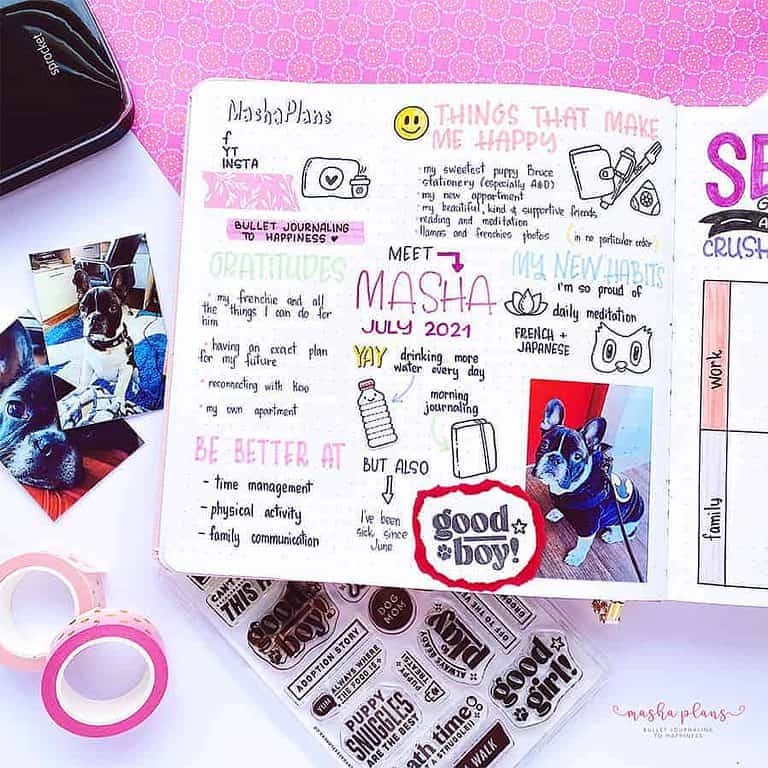 sprocket
MashaPlans
f
YT
INSTA
BULLET JOURNALING
TO HAPPINESS ♥
THINGS THAT MAKE
ME HAPPY
- my sweetest puppy Bruce
- stationery (especially A&O)
- my new appartment
- my beautiful, kind & supportive friends
- reading and meditation
- llamas and frenchies photos
(in no particular order)
GRATITUDES
• my frenchie and all
the things I can do for
him
• having an exact plan
for my future
• reconnecting with
• my own apartment
BE BETTER AT
- time management
- physical activity
- family communication
MEET
MASHA
JULY 2021
YAY drinking more
water every day
morning
journaling
BUT ALSO
I've been
sick since
June
MY NEW HABITS
i'm so proud of
daily meditation
FRENCH +
JAPANESE
good
boy!
SE
CRUSH
work
family
THIS
good
boy!
DOG
MOM
ADOPTION STORY
YUM
ALWAYS WHERE
THE FOOD IS
PUPPY
TREATS!
ALWAYS READY
to
play
OFF TO THE VET
good
girl!
PUPPY
SNUGGLES
ARE THE BEST
bath time
(A STRUGGLE!)
WALK
masha plans
BULLET JOURNALING
TO HAPPINESS